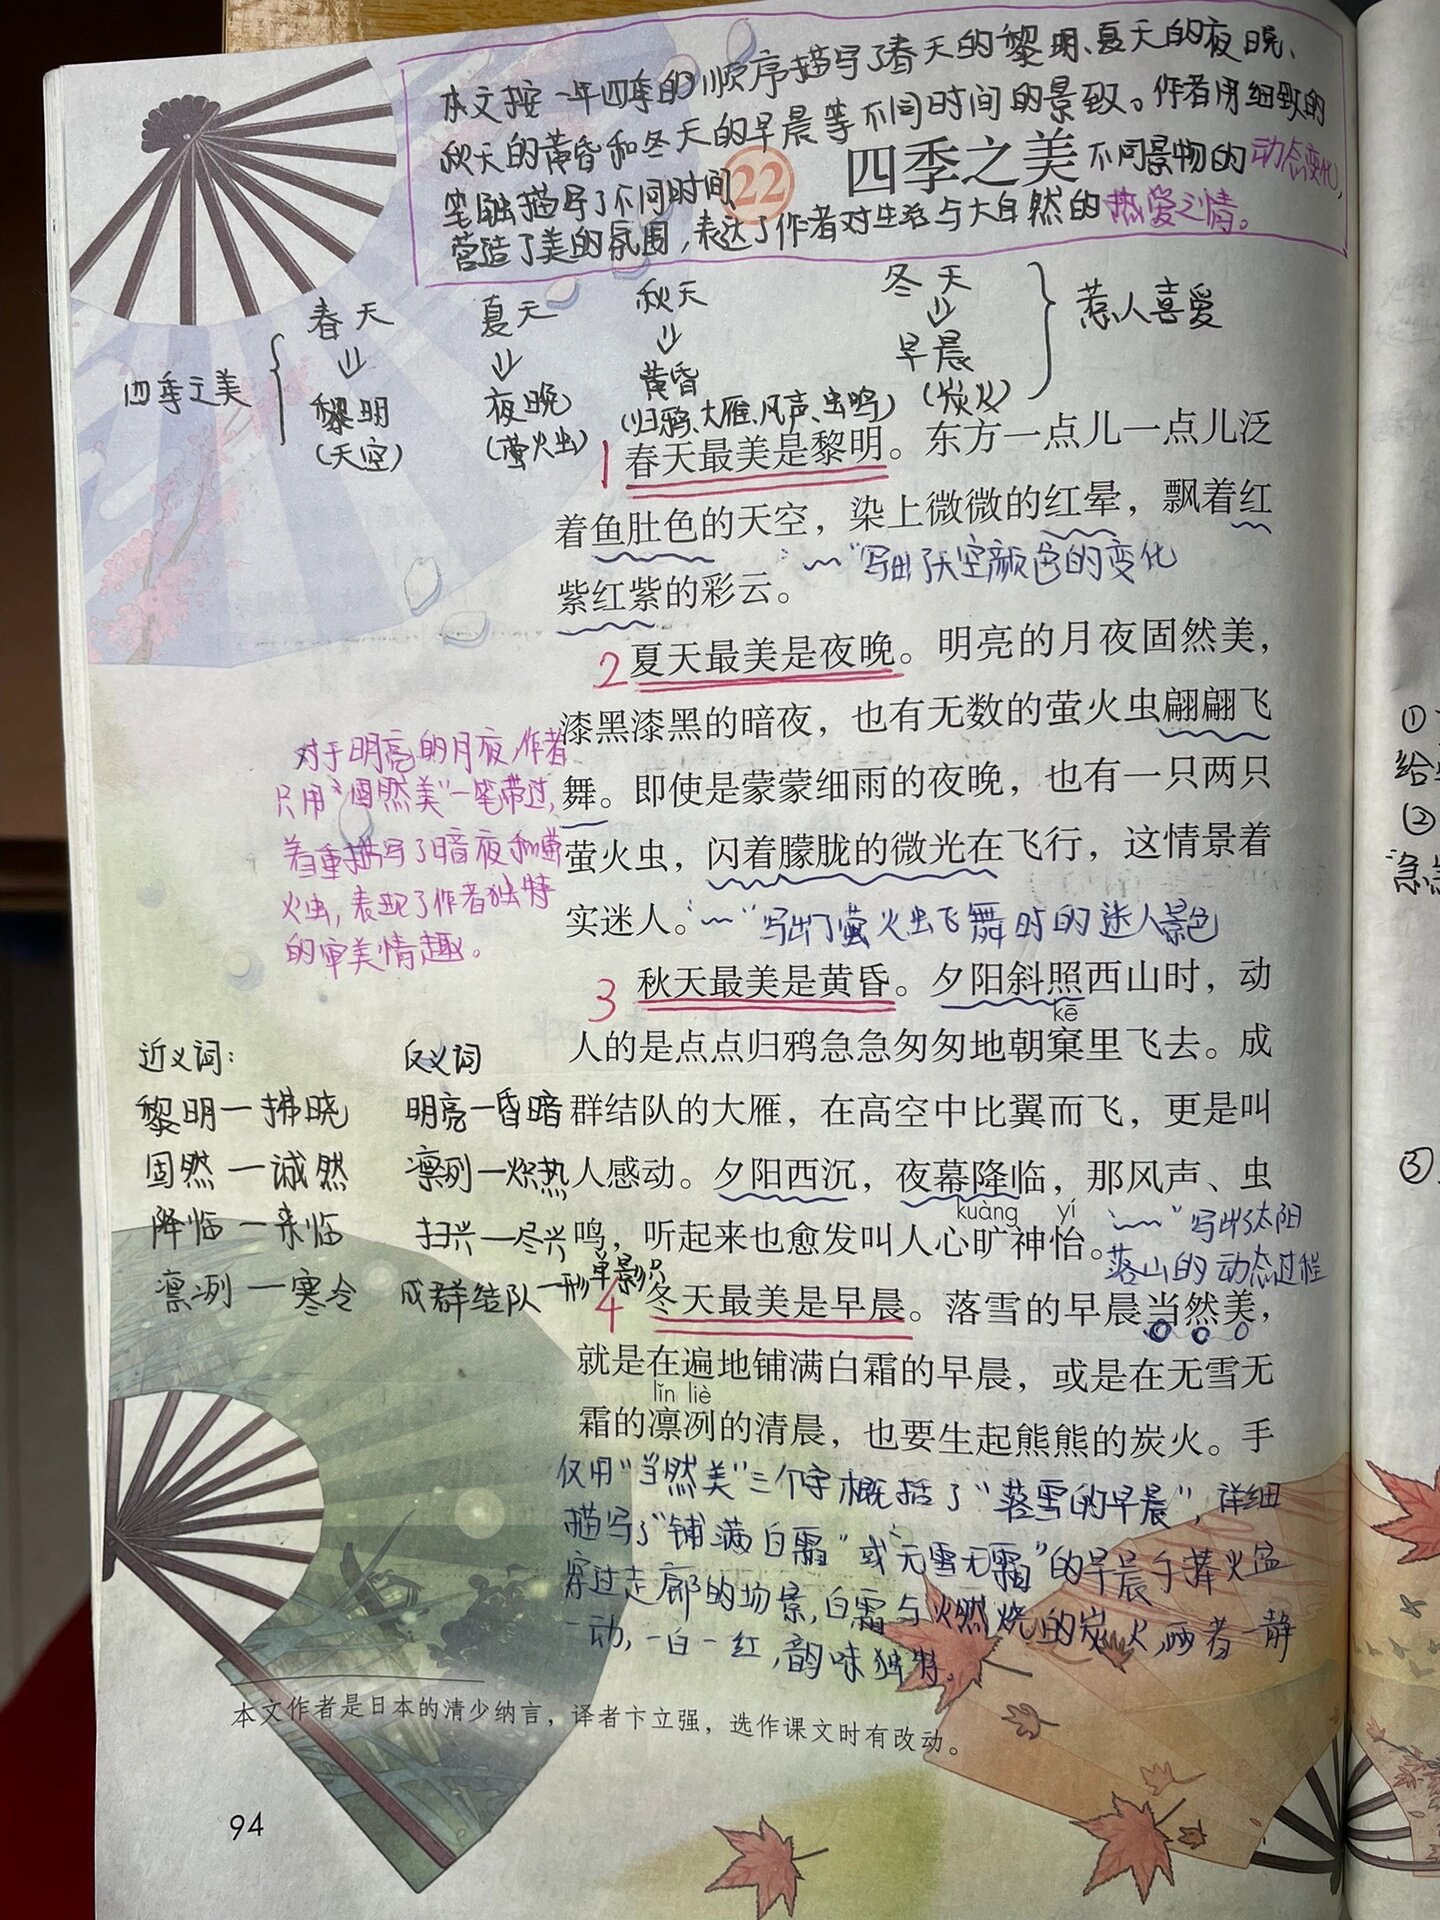 本文按一年四季的顺序描写了春天的黎明、夏天的夜晚、
秋天的黄昏和冬天的早晨等不同时间的景致。作者用细致的
笔触描写了不同时间、不同景物的动态变化,
营造了美的氛围,表达了作者对生活与大自然的热爱之情。
22 四季之美
四季之美
春天
黎明
(天空)
夏天
夜晚
(萤火虫)
秋天
黄昏
(归鸦、大雁、风声、虫鸣)
冬天
早晨
(炭火)
惹人喜爱
1 春天最美是黎明。东方一点儿一点儿泛
着鱼肚色的天空，染上微微的红晕，飘着红
“﹏”写出了天空颜色的变化
紫红紫的彩云。
2 夏天最美是夜晚。明亮的月夜固然美，
漆黑漆黑的暗夜，也有无数的萤火虫翩翩飞
舞。即使是蒙蒙细雨的夜晚，也有一只两只
萤火虫，闪着朦胧的微光在飞行，这情景着
实迷人。“﹏”写出了萤火虫飞舞时的迷人景色
对于明亮的月夜,作者
只用“固然美”一笔带过,
着重描写了暗夜和萤
火虫,表现了作者独特
的审美情趣。
3 秋天最美是黄昏。夕阳斜照西山时，动
kē
人的是点点归鸦急急匆匆地朝窠里飞去。成
群结队的大雁，在高空中比翼而飞，更是叫
人感动。夕阳西沉，夜幕降临，那风声、虫
kuàng yí
鸣，听起来也愈发叫人心旷神怡。
“﹏”写出了太阳
落山的动态过程
近义词:
黎明—拂晓
固然—诚然
降临—来临
凛冽—寒冷
反义词
明亮—昏暗
凛冽—炽热
扫兴—尽兴
成群结队—形单影只
4 冬天最美是早晨。落雪的早晨当然美，
就是在遍地铺满白霜的早晨，或是在无雪无
lǐn liè
霜的凛冽的清晨，也要生起熊熊的炭火。手
仅用“当然美”三个字概括了“落雪的早晨”,详细
描写了“铺满白霜”或“无雪无霜”的早晨手捧火盆
穿过走廊的场景,白霜与火燃烧的炭火,两者一静
一动,一白一红,韵味独特。
本文作者是日本的清少纳言，译者卞立强，选作课文时有改动。
94
①
给
②
③